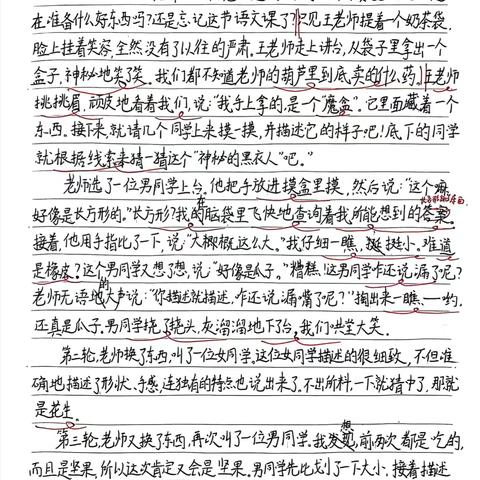 在准备什么好东西吗?还是忘记这节语文课了?只见王老师提着一个奶茶袋,
脸上挂着笑容,全然没有了以往的严肃。王老师走上讲台,从袋子里拿出一个
盒子,神秘地笑了笑。我们都不知道老师的葫芦里到底卖的什么药。王老师
挑挑眉,顽皮地看着我们,说:“我手上拿的,是一个“魔盒”。它里面藏着一个
东西。接下来,就请几个同学上来摸一摸,并描述它的样子吧!底下的同学
就根据线索来猜一猜这个“神秘的黑衣人”吧。”
老师选了一位男同学上台。他把手放进摸盒里摸,然后说:“这个嘛,
好像是长方形的。”长方形?我的脑袋里飞快地查询着我所能想到的答案。
接着,他用手指比了一下,说:“大概概这么大。”我仔细一瞧,挺挺小。难道
是橡皮?这个男同学又想了想,说:“好像是瓜子。”糟糕!这男同学咋还说漏了呢?
老师无语地大声说:“你描述就描述,咋还说漏嘴了呢?”掏出来一瞧,一哟,
还真是瓜子,男同学挠了挠头,灰溜溜地下了台,我们哄堂大笑。
第二轮,老师换了东西,叫了一位女同学,这位女同学描述的很细致,不但准
确地描述了形状、手感,连独有的特点也说出来了。不出所料,一下就猜中了,那就
是花生。
第三轮,老师又换了东西,再次叫了一位男同学。我发现,前两次都是吃的,
而且是坚果,所以这次肯定又会是坚果。男同学先比划了一下大小,接着描述